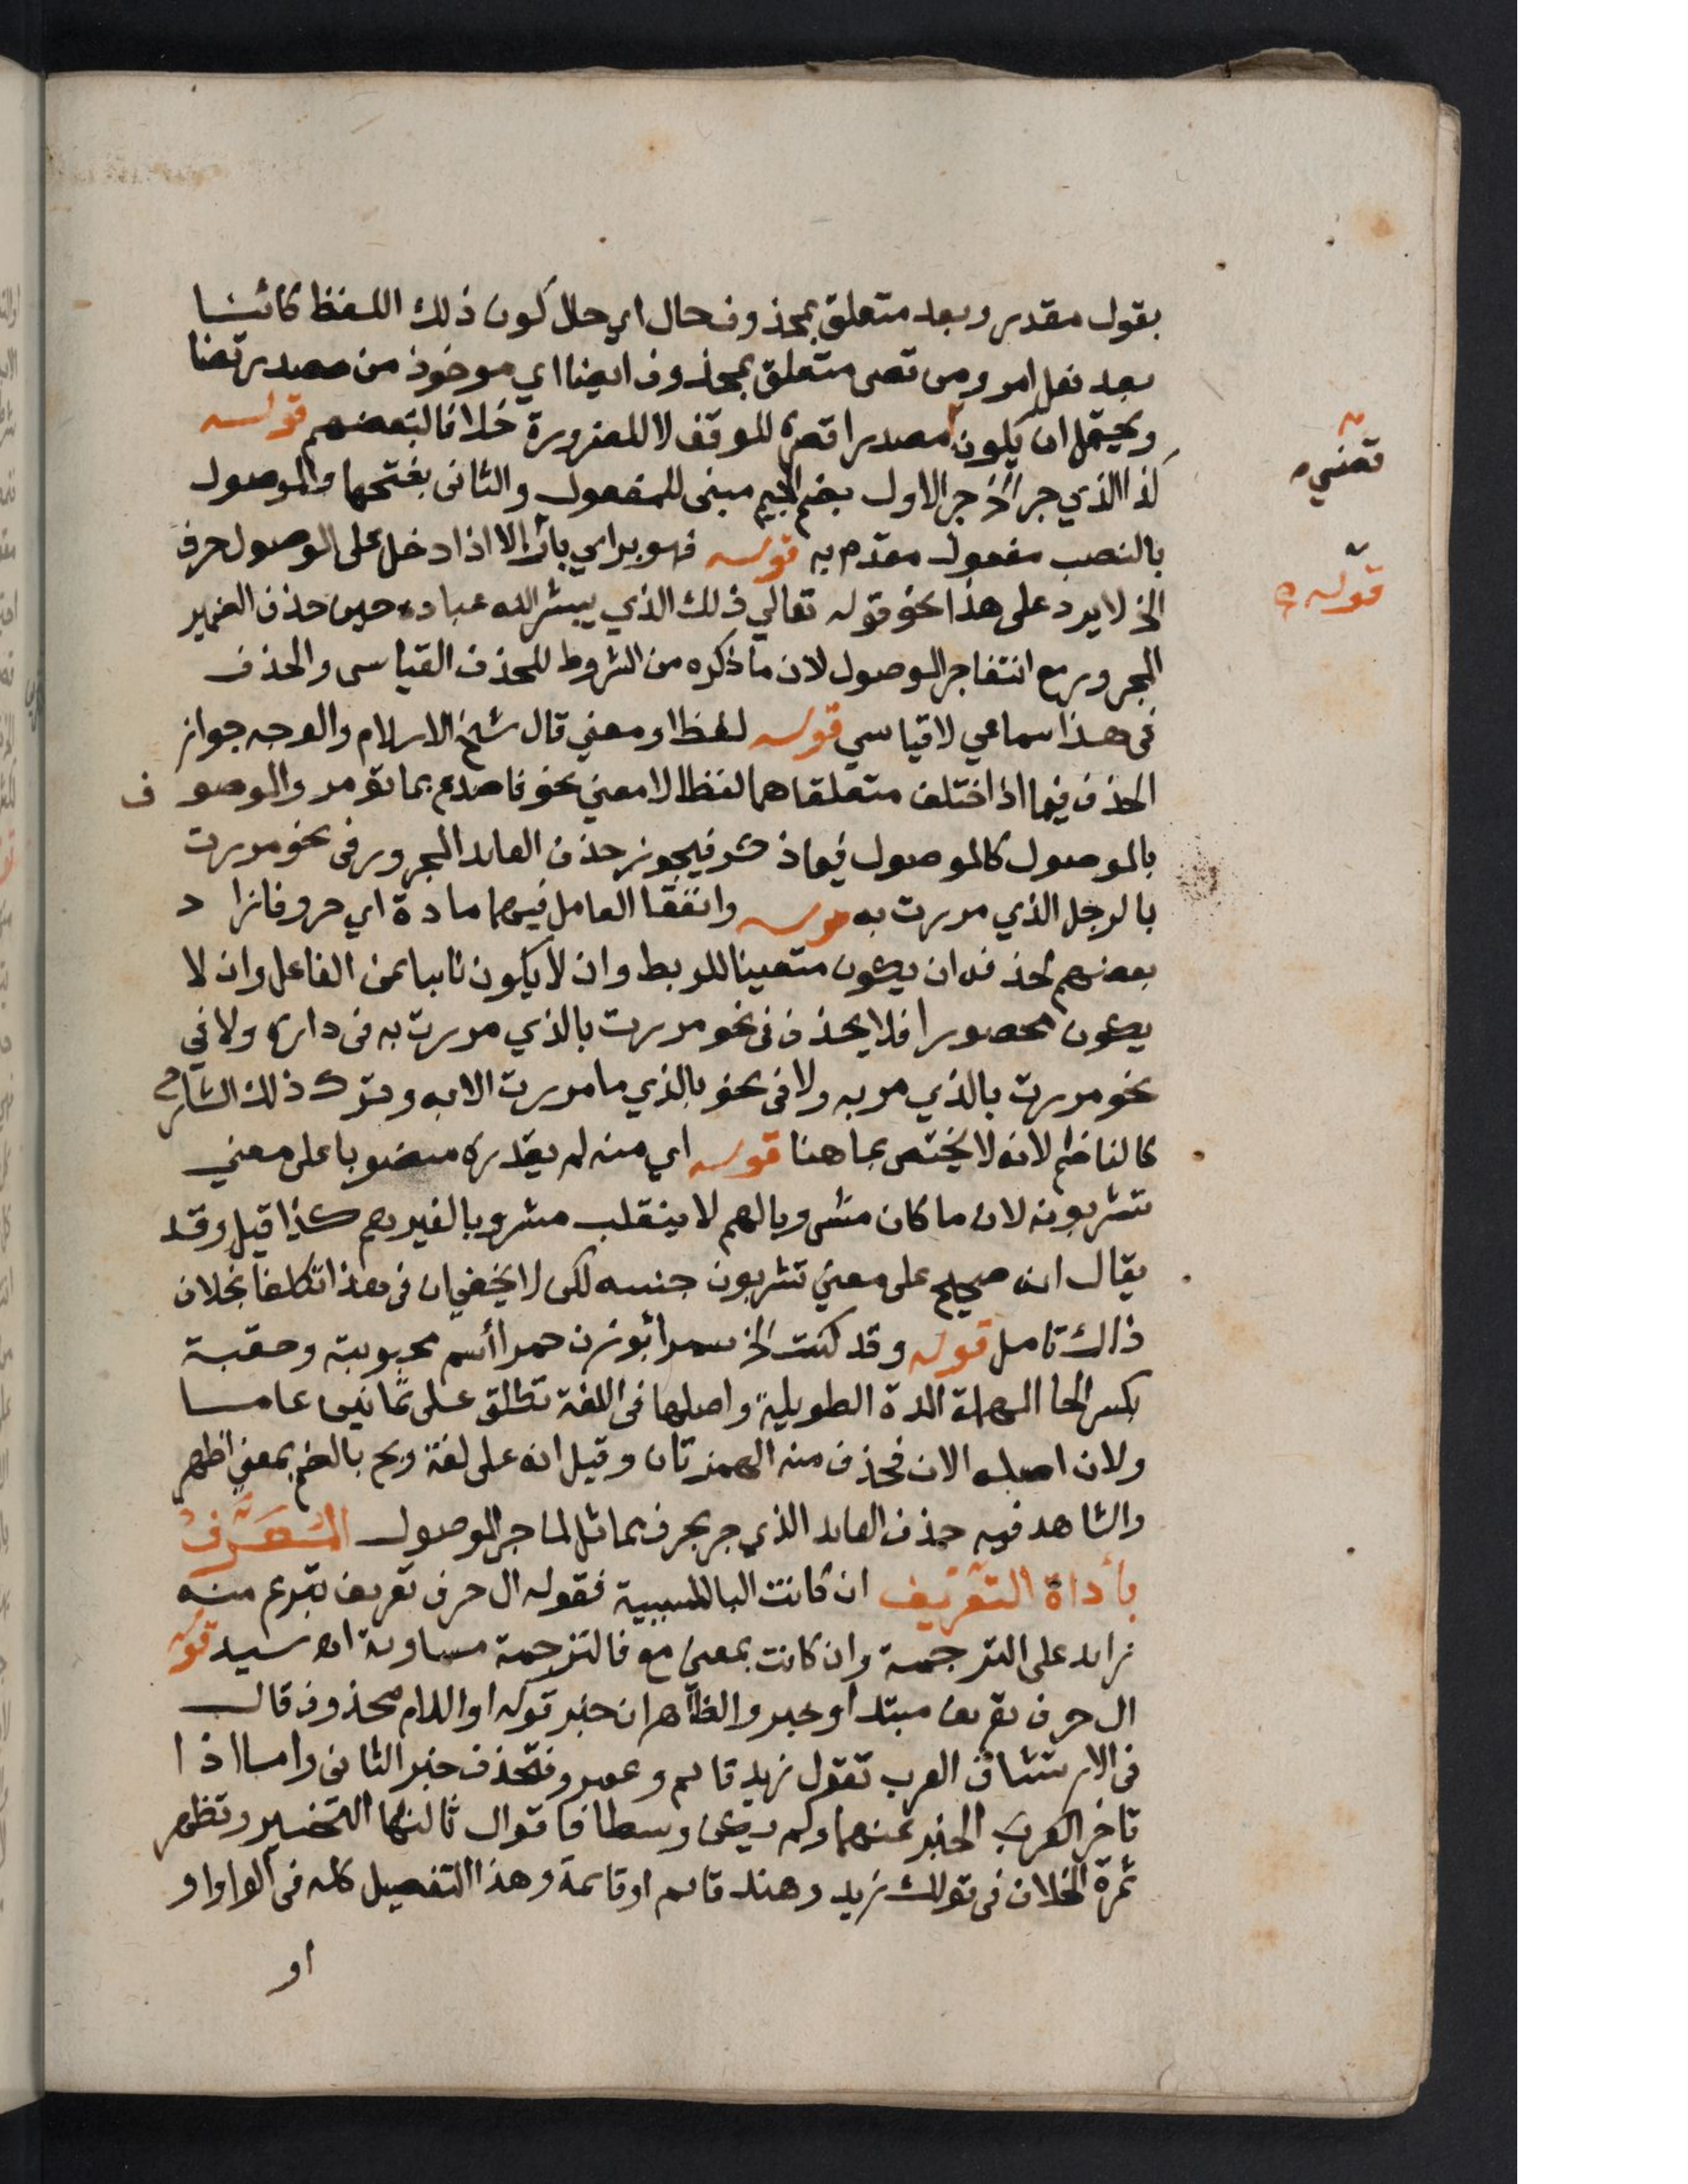 بقول مقدر وبعد متعلق بمحذوف حال اي حال كون ذلك اللفظ كائنا
بعد فعل امر ومن قضى متعلق بمحذوف ايضا اي موخوذ من مصدر قضا
ويحتمل ان يكون مصدرا قصره للوقف لا للضرورة خلافا لبعضهم قوله
كذا الذي جر الخ جر الاول بضم الجيم مبنى للمفعول والثانى بفتحها والموصول
بالنصب مفعول مقدم به قوله فهو براي بار الا اذا دخل على الموصول حرف
الخ لا يرد على هذا نحو قوله تعالي ذلك الذي يبشر الله عباده حيث حذف الضمير
المجرور مع انتفا جر الموصول لان ما ذكره من الشروط للحذف القياسى والحذف
فى هذا سماعي لا قياسي قوله لفظا ومعني قال شيخ الاسلام والوجه جواز
الحذف فيما اذا اختلف متعلقاهما لفظا لا معني نحو فاصدع بما تؤمر والموصوف
بالموصول كالموصول فيما ذكر فيجوز حذف العايد المجرور فى نحو مررت
بالرجل الذي مررت به قوله واتفقا العامل فيهما مادة اي حروفا زاد
بعضهم لحذفه ان يكون متعينا للربط وان لا يكون نايبا عن الفاعل وان لا
يكون محصورا فلا يحذف فى نحو مررت بالذي مررت به فى داره ولا في
نحو مررت بالذي مر به ولا فى نحو بالذي ما مررت الا به وترك ذلك الشارح
كالناظم لانه لا يختص بما هنا قوله اي منه لم يقدره منصوبا على معني
تشربونه لان ما كان مشروبا لهم لا ينقلب مشروبا لغيرهم كذا قيل وقد
يقال انه صحيح على معني تشربون جنسه لكن لا يخفي ان فى هذا تكلفا بخلاف
ذاك تامل قوله وقد كنت الخ سمرا بوزن حمرا أسم محبوبته وحقبة
بكسر الحا المهملة المدة الطويلة واصلها فى اللغة تطلق على ثمانين عاما
ولان اصله الان فحذف منه الهمزتان وقيل انه على لغة وبح بالضم بمعني اظهر
والشاهد فيه حذف العايد الذي جر بحرف مماثل لما جر الموصول المُعَرَّفُ
بأداة التعريف ان كانت البا للسببية فقوله ال حرف تعريف تبرع منه
زايد على الترجمة وان كانت بمعني مع فالترجمة مساوية اه سيد قوله
ال حرف تعريف مبتدا وخبر والظاهر ان خبر قوله او اللام محذوف قال
فى الارتشاف العرب تقول زيد قايم وعمرو فتحذف خبر الثانى واما اذا
تاخر العرب الخبر عنهما ولم يكن وسطا فاقوال ثالثها التخيير وتظهر
ثمرة الخلاف فى قولك زيد وهند قايم او قائمة وهذا التفصيل كله فى الواو او
او
قوله